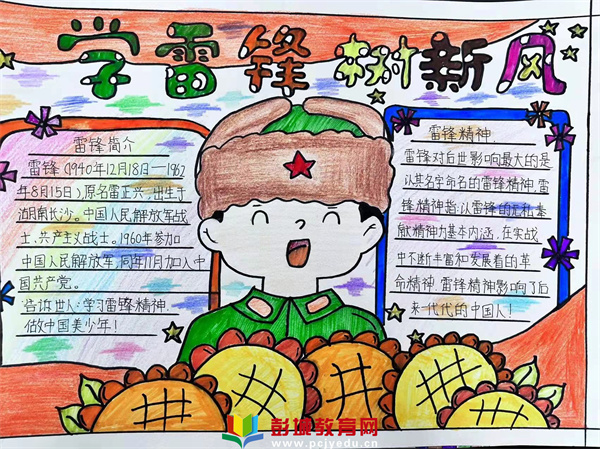 学雷锋树新风
雷锋简介
雷锋(1940年12月18日—1962
年8月15日),原名雷正兴,出生于
湖南长沙。中国人民解放军战
士、共产主义战士。1960年参加
中国人民解放军,同年11月加入中
国共产党。
告诉世人:学习雷锋精神,
做中国美少年!
雷锋精神,
雷锋对后世影响最大的是
以其名字命名的雷锋精神,雷
锋精神指:以雷锋的无私奉
献精神为基本内涵,在实战
中不断丰富和发展着的革
命精神,雷锋精神影响了后
来一代代的中国人!
彭城教育网
www.pcjyedu.cn